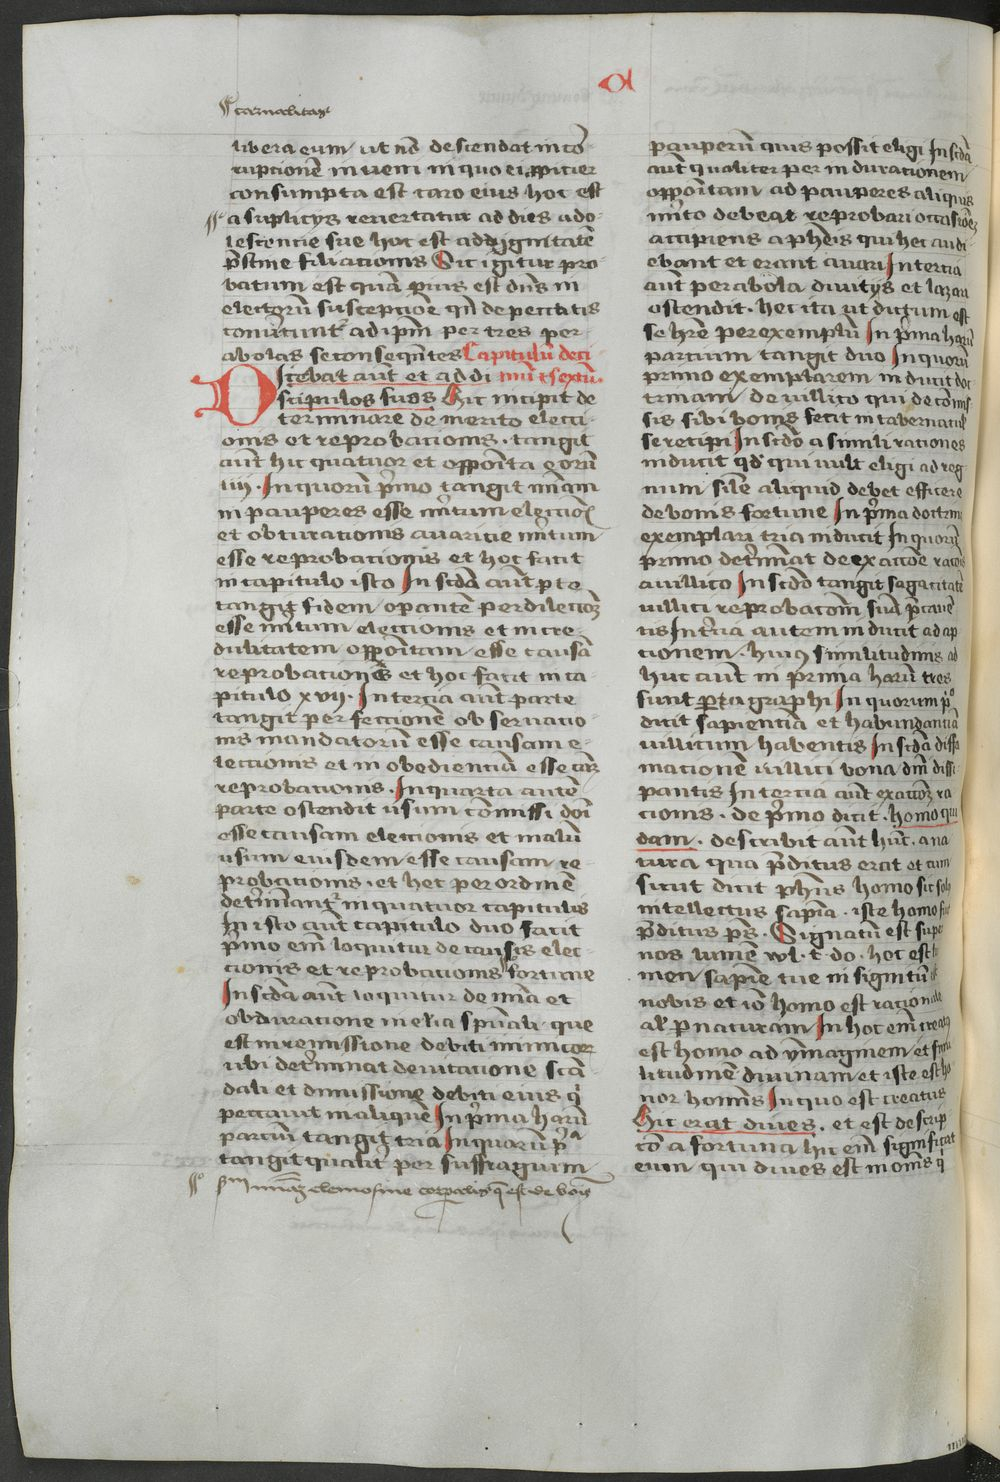 carnalitas
libera eum ut nō descendat in cō
ruptionē
consumpta est caro eius hoc est
a suplicijs reuertatur ad dies ado-
lescencie sue hoc est ad dignitatē
p̄stine filiacionis Sic igitur pro-
batum est quā prius est dn̄s in
electorū suscepcione qn̄ de peccatis
conūtunt᷑ ad ip̄m per tres per-
abolas se consequn̄tes Capitulū deci
Dicebat aut̄ et ad di mū & sextū.
scipulos suos Hic incipit de
terminare de merito electi-
onis et reprobacionis. tangit
aut̄ hic quatuor et opp̄oita eorū
iiij. In quorū p̄mo tangit mīam
in pauperes esse m̄itum
et obturacionis auaricie m̄itum
esse reprobacionis et hoc facit
in capitulo isto In scd̄a aut̄ p̄te
tangit fidem operantē per
esse m̄itum eleccionis et incre-
dulitatem opp̄oitam esse causā
reprobacionis et hoc facit in ca-
pitulo xvij. In tercia aut̄ parte
tangit perfeccionē obseruacio-
nis mandatorū esse causam e-
leccionis et inobedienciā esse
reprobacionis. In quarta autē
parte ostendit usum cōmissi doī
esse causam eleccionis et malū
usum eiusdem esse causam re-
probacionis. et hec per ordinē
det̄minant᷑ in quatuor capitulis
In isto aut̄ capitulo duo facit
p̄mo em̄ loquitur de causis elec-
cionis et reprobacionis fortune
In scd̄a aut̄ loquitur de mīa et
obduracione in elīa spūali. que
est in remissione debiti
ubi det̄minat de uitacione scā
dali et dimissione debiti eius q̄
peccauit in aliquē In p̄ma harū
parciū tangit tria In quorū p̄o
tangit qualit̄ per suffragium
elemosine corporalis q̄ est de bonis
a
pauperū quis possit eligi In scd̄a
aut̄ qualiter per induracionem
opp̄oitam ad pauperes aliquis
m̄ito debeat reprobari
accipiens a ph̄eis qui hec audi
ebant et erant auari In tercia
aut̄ perabola diuitijs et lazari
ostendit. hec ita ut dictum est
se hr̄e per exemplū In p̄ma harū
parcium tangit duo In quorū
primo exemplarem inducit doc
trinam de uillico qui de cōmis
sis sibi bonis fecit in tabernacul
se recipi In scd̄o a simili raciones
inducit qd̄ qui uult eligi ad reg
num sil̄e aliquid debet efficere
de bonis fortune In p̄ma doctrin
exemplari tria inducit In quorū
primo det̄minat de exaccōe
a uillico In scd̄o tangit sagacitatē
uillici reprobacōm suā p̄cauē
tis In t̄cia autem inducit adap
tionem. huius similitudinis ad
huc aut̄ in prima harū tres
sunt paragraphi In quorum p̄o
dicit sapienciā et habundanciā
uillicum habentis In scd̄a diffa
macionē uillici bona dn̄i dissi-
pantis In tercia aut̄ exaccōꝫ ra
cionis. de p̄mo dicit. homo qui
dam. describit aut̄ hūc. a na
tura qua p̄ditus erat et cum
sicut dicit ph̄us homo sit
intellectus sapīa. iste homo
p̄ditus Signatū est supe
nos lumē wl. t. do. hoc est
men sapīe tue in signitū
nobis et iō homo est racionale
per naturam In hoc em̄ creatus
est homo ad ymaginem et simi
litudinē diuinam et iste est ho
nor hominis In quo est creatus
Hic erat diues. et est descrip
cō a fortuna hic em̄ significat
eum qui diues est in om̄s q̄